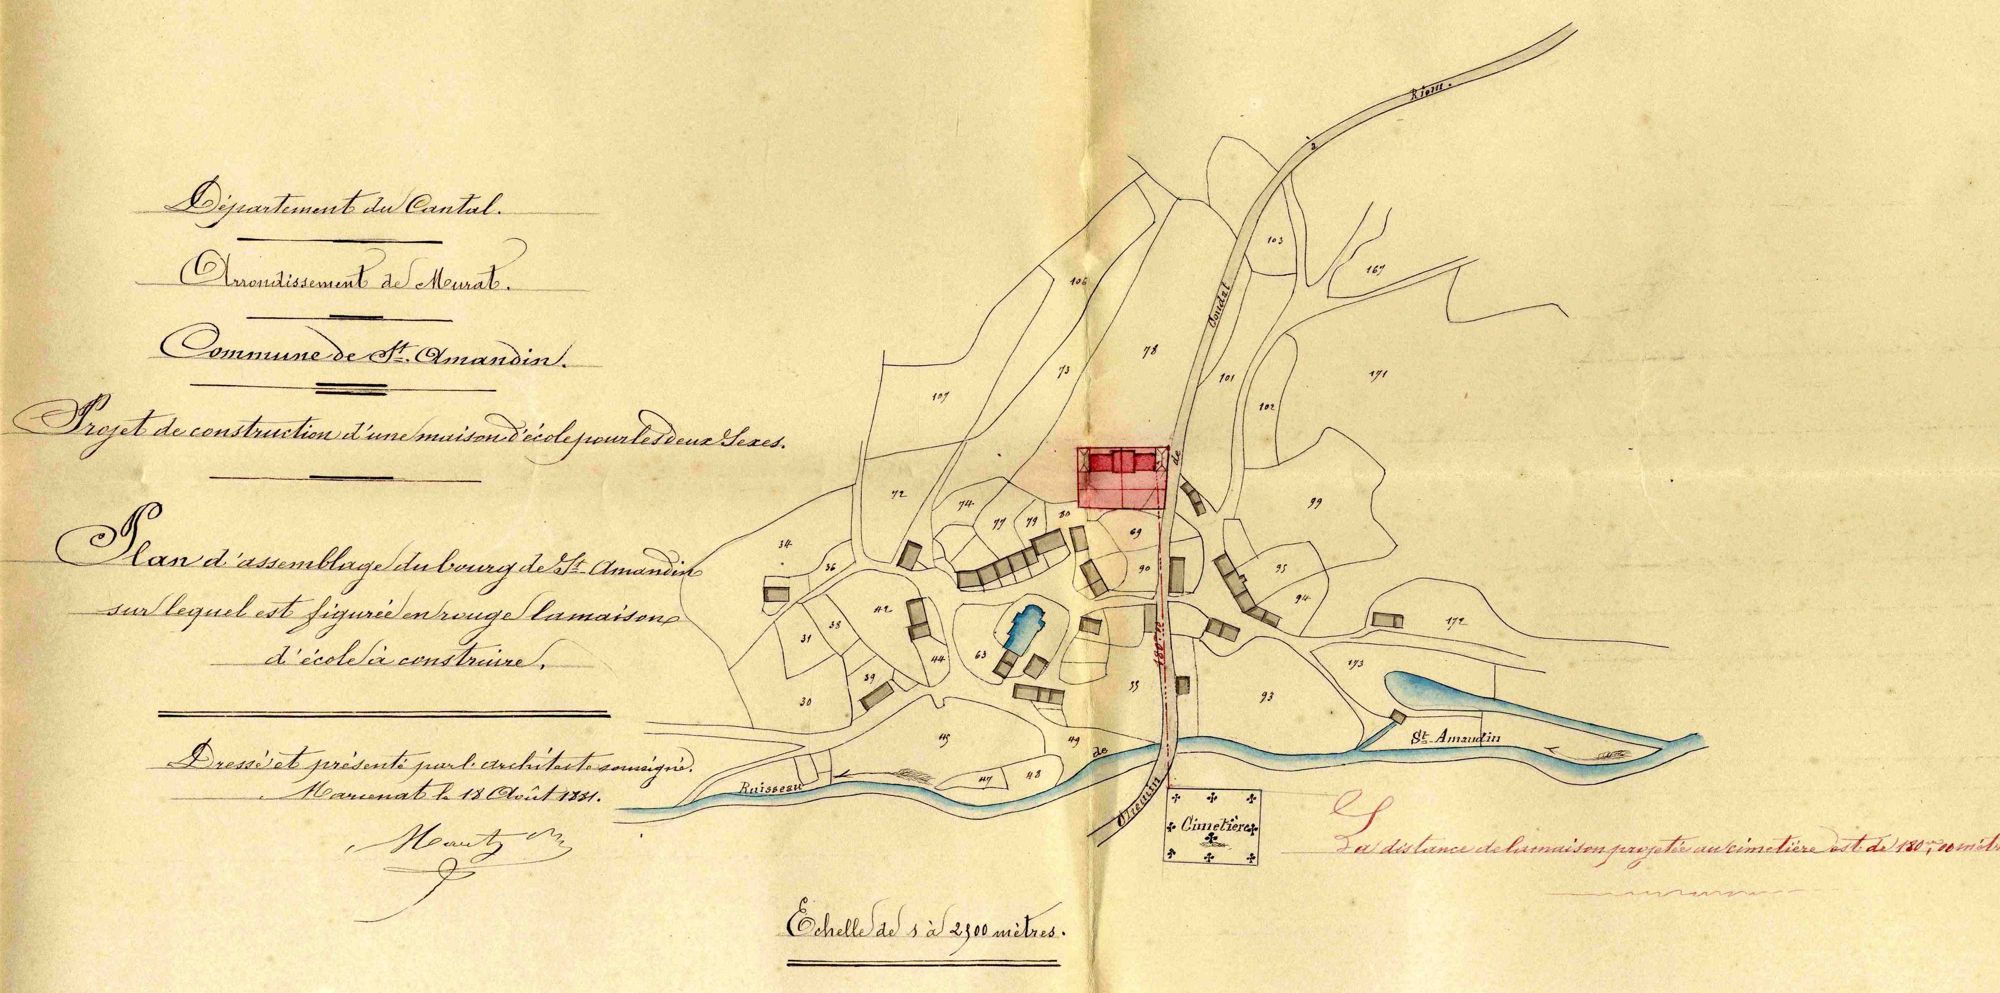 Département du Cantal.
Arrondissement de Murat.
Commune de St. Amandin.
Projet de construction d'une maison d'école pour les deux Sexes.
Plan d'assemblage du bourg de St. Amandin
sur lequel est figurée en rouge la maison
d'école à construire.
Dressé et présenté par l'architecte soussigné.
le 18 Août 1881.
Echelle de 1 à 2500 mètres.
Chemin de Condat à Riom.
103
167
106
78
73
101
107
102
171
72
74
77
79
80
69
99
34
36
90
95
94
42
38
31
172
44
63
173
39
30
33
93
180m 00
45
49
47
48
Ruisseau de St. Amandin
Cimetière
La distance de la maison projetée au cimetière est de 180m,00 mèt